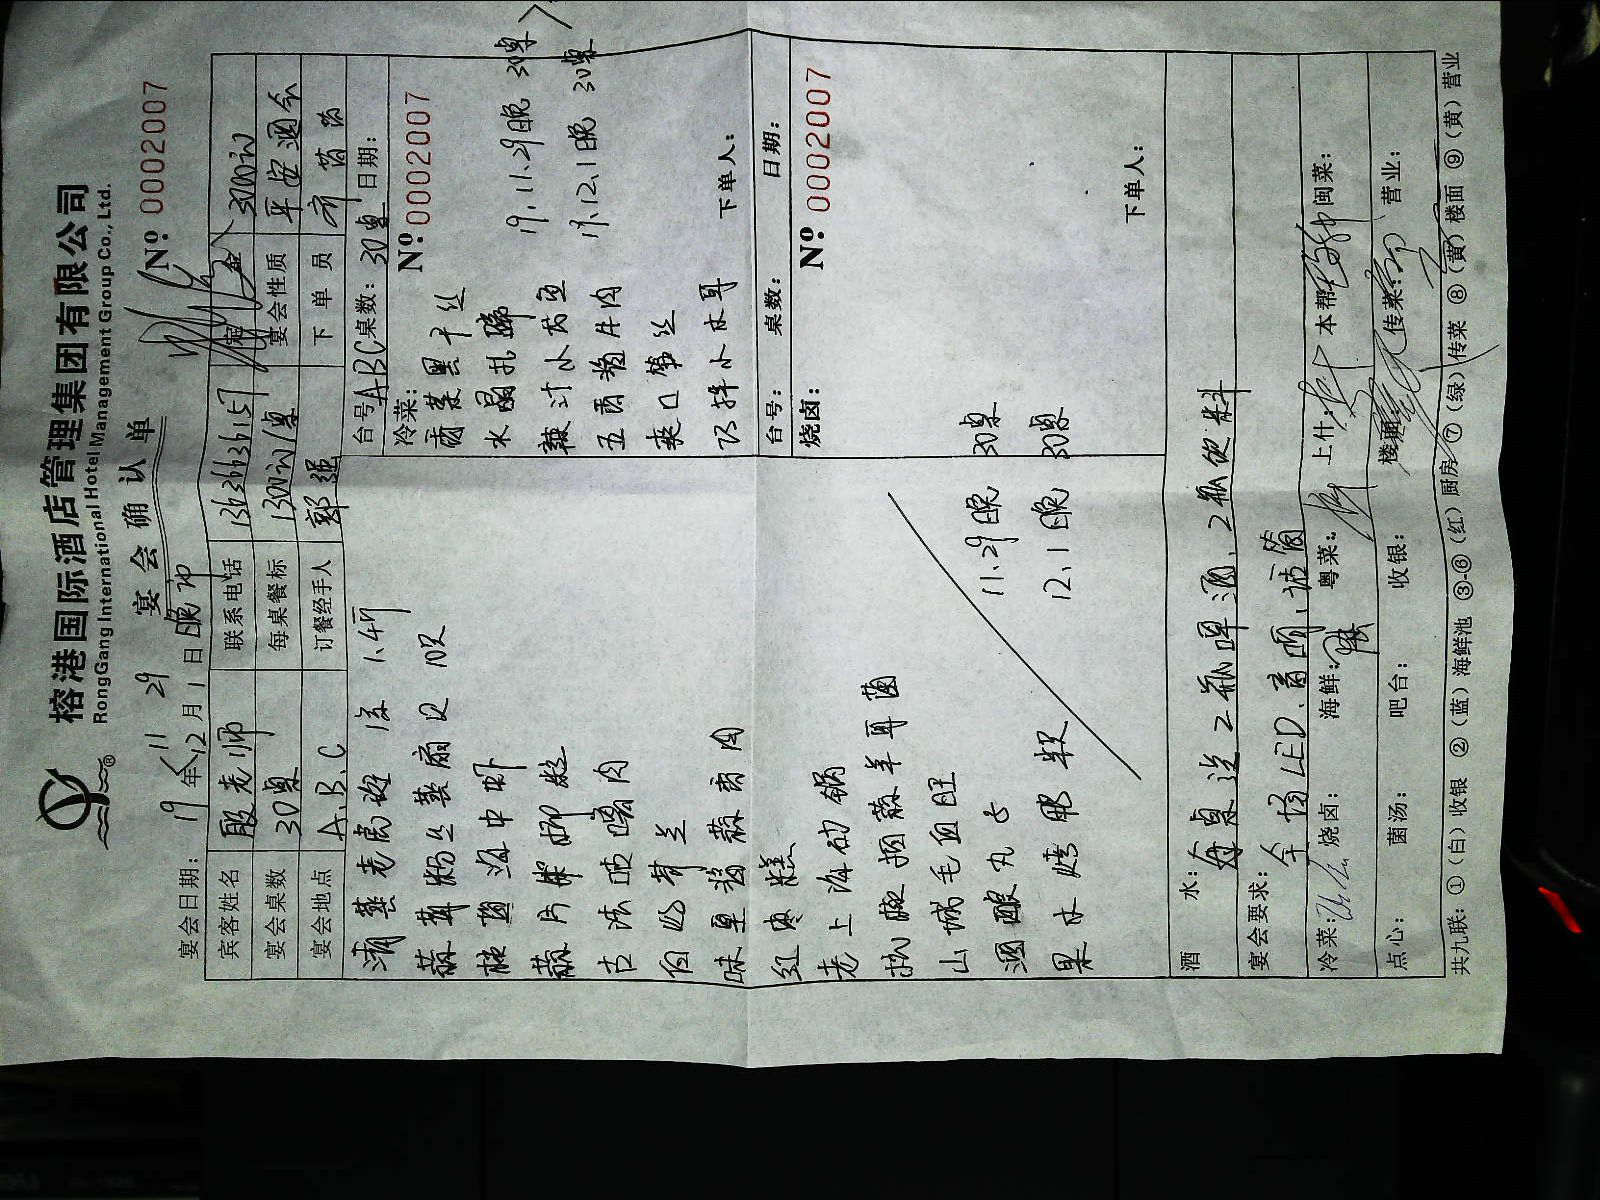 榕港国际酒店管理集团有限公司
RonGang International Hotel Management Group Co., Ltd.
宴会确认单
№ 0002007
宴会日期: 19年 11 29
12月1日 晚
宾客姓名 殷老师 联系电话 定金 3000元
宴会桌数 30桌 每桌餐标 1300元/桌 宴会性质 平安酒会
宴会地点 A.B.C 订餐经手人 郭强 下单员
台号: ABC 桌数: 30桌 日期:
冷菜: №0002007
干丝
水晶
五香酱牛肉
爽口
巧拌小木耳
19.11.29晚 30桌
19.12.1晚 30桌
下单人:
清蒸老虎斑 1条 1.4斤
蒜茸粉丝蒸扇贝 10只
椒盐海中虾
蒜片
古法
白灼芥兰
味
红枣糕
老上海砂锅
山城毛血旺
酒酿丸子
果木烤鸭 半只
11.29晚 30桌
12.1晚 30桌
台号: 桌数: 日期:
烧卤: №0002007
下单人:
酒水: 每桌送2瓶啤酒、2瓶饮料
宴会要求: 全场LED、音响、话筒
冷菜: 烧卤: 海鲜: 粤菜: 上什: 本帮: 闽菜:
点心: 菌汤: 吧台: 收银: 楼面: 传菜: 营业:
共九联: ①(白)收银 ②(蓝)海鲜池 ③-⑥(红)厨房 ⑦(绿)传菜 ⑧(黄)楼面 ⑨(黄)营业